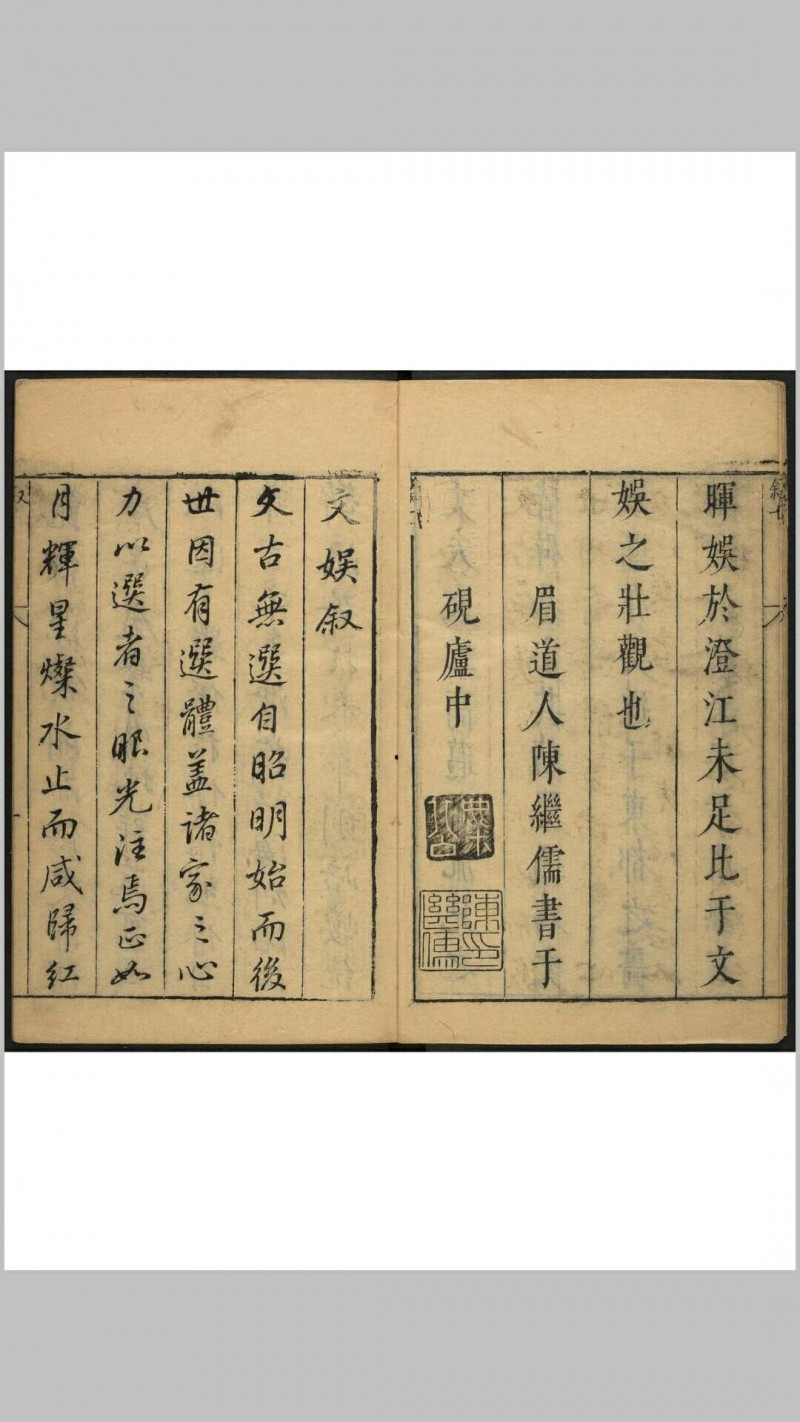 暉娛於澄江未足比于文
娛之壯觀也
眉道人陳繼儒書于
硯廬中
陳印
繼儒
文娛叙
文古無選自昭明始而後
世因有選體盖諸家之心
力以選者之眼光注焉正如
月輝星燦水止而咸歸紅